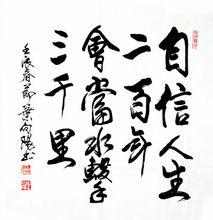 自信人生
二百年
會當水擊
三千里
壬辰春節葉向陽书